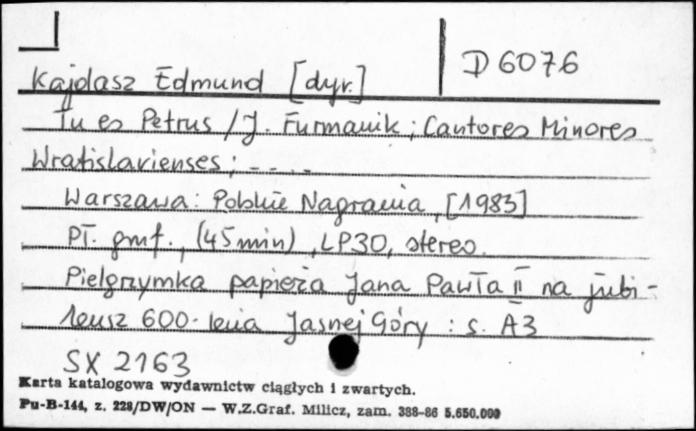 D 6076
Kajdasz Edmund [dyr.]
Tu es Petrus / J. Furmanik ; Cantores Minores
Wratislavienses ; - - . .
Warszawa : Polskie Nagrania, [1983]
Pł. gmf., (45 min), LP30, stereo.
Pielgrzymka papieża Jana Pawła II na jubi-
leusz 600-lecia Jasnej Góry : s. A3
SX 2163
Karta katalogowa wydawnictw ciągłych i zwartych.
Pu-B-144, z. 228/DW/ON — W.Z.Graf. Milicz, zam. 388-86 5.650.000